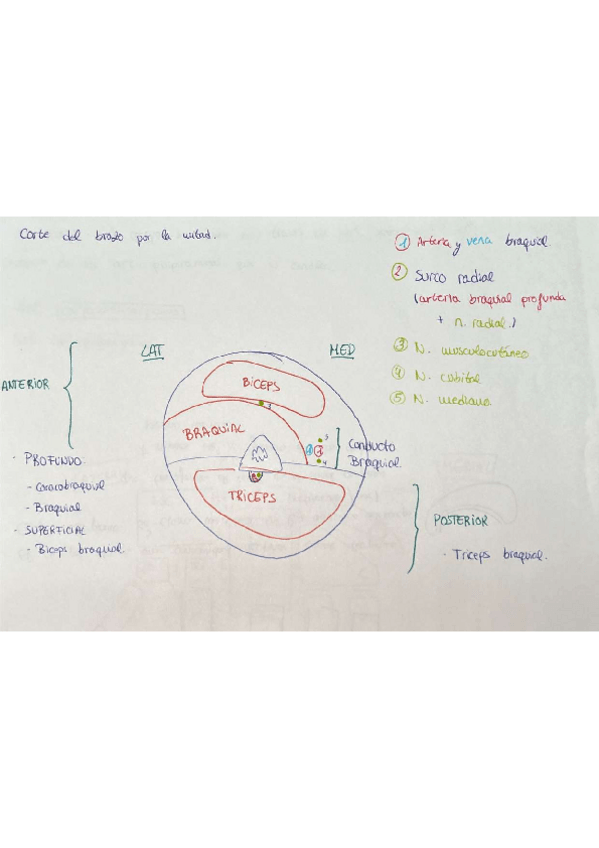 Corte del brazo por la mitad.
1 Arteria y vena braquial.
2 Surco radial
(arteria braquial profunda
+ n. radial.)
3 N. musculocutáneo
4 N. cubital
5 N. mediano
LAT
MED
ANTERIOR
BÍCEPS
3
BRAQUIAL
5
1
1
4
Conducto
Braquial
TRICEPS
- PROFUNDO:
- Coracobraquial
- Braquial
- SUPERFICIAL
- Biceps braquial.
POSTERIOR
- Triceps braquial.